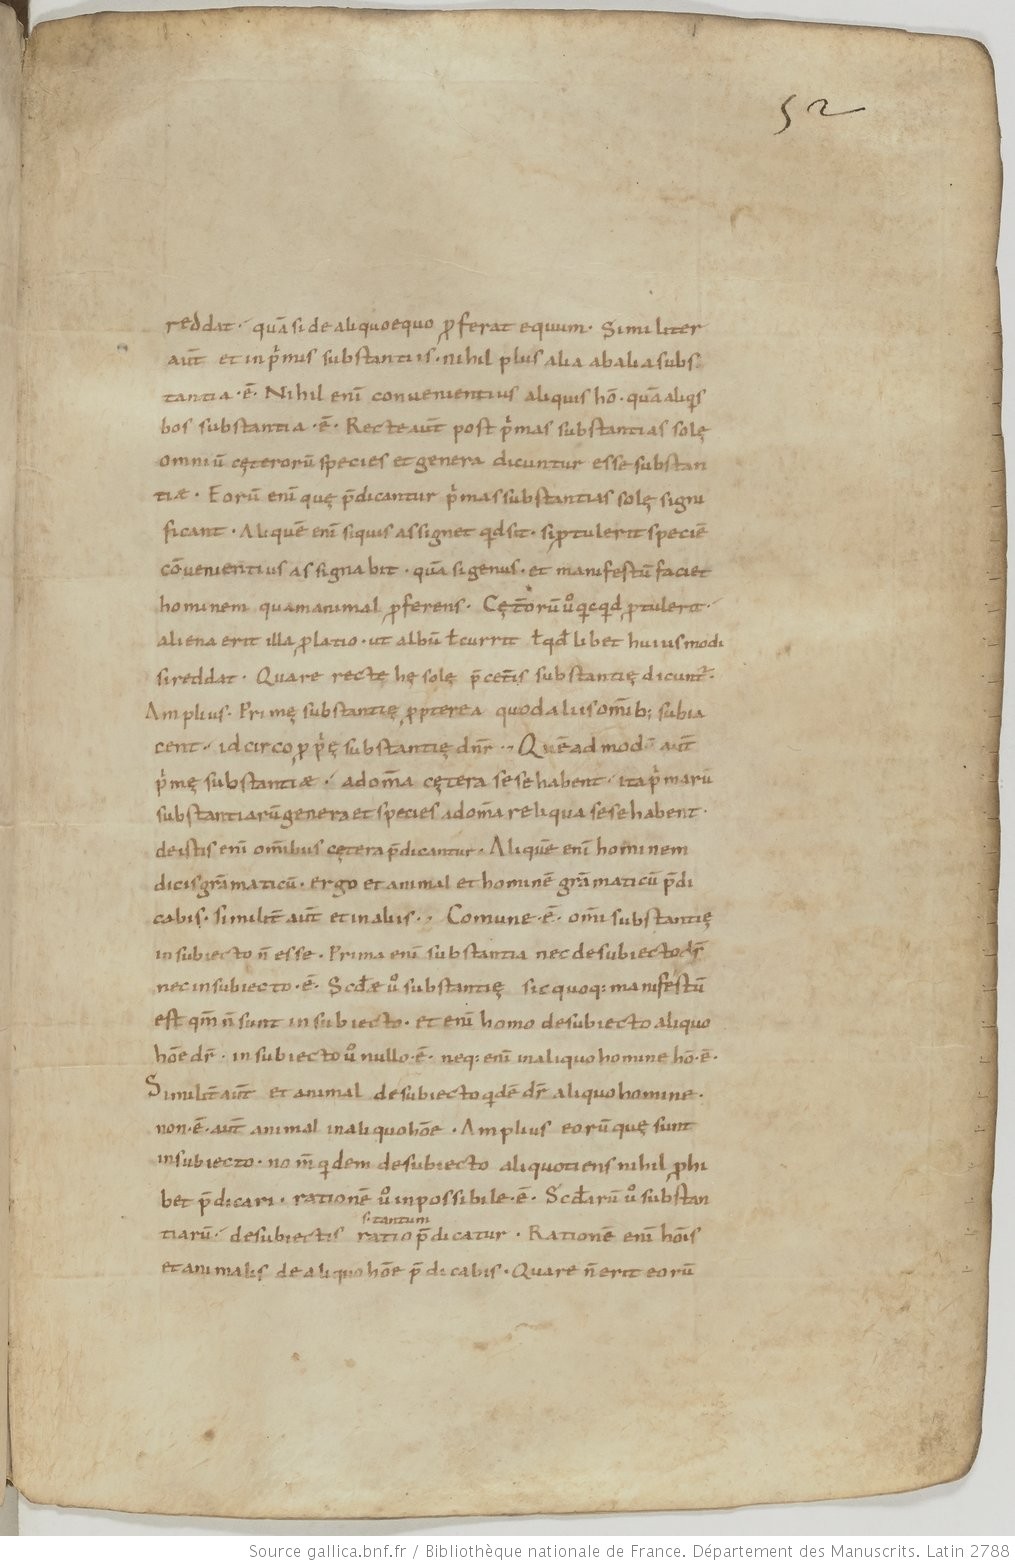 52
reddat · quā si de aliquo equo ꝓferat equum · Similiter
aut̄ et in p̓mis substantiis · nihil plus alia ab alia subs
tantia · ē · Nihil enī convenientius aliquis hō · quā aliq̓s
bos substantia · ē · Recte aut̄ post p̓mas substantias solę
omniū cęterorū species et genera dicuntur esse substan
tiæ · Eorū enī quę p̄dicantur p̓mas substantias solę signi
ficant · Aliquē enī siquis assignet qd sit · si ꝓtulerit speciē
cōvenientius assignabit · quā si genus · et manifestū faciet
hominem quam animal ꝓferens · Cęt̄orū ů q̓cq̓d ꝓtulerit ·
aliena erit illa ꝓlatio · ut albū ł currit ł qđ libet huiusmodi
si reddat · Quare recte hę solę p̄ cet̄is substantię dicunt̄ ·
Amplius · Primę substantię ꝓpterea quod aliis om̄ib; subia
cent · idcirco ꝓp̓ę substantię dn̄r · Quēadmodū aut̄
p̓mę substantiæ · ad om̄a cętera sese habent · ita p̓marū
substantiarū genera et species ad om̄a reliqua sese habent ·
de istis enī om̄ibus cętera p̄dicantur · Aliquē enī hominem
dicis grāmaticū · ergo et animal et hominē grāmaticū p̄di
cabis · similit̄ aut̄ et in aliis · Comune · ē · omī substantię
in subiecto n̄ esse · Prima enī substantia nec de subiecto dr̄
nec in subiecto · ē · Scđæ ů substantię sic quoq: manifestū
est qm̄ n̄ sunt in subiecto · et enī homo de subiecto aliquo
hōe dr̄ · in subiecto ů nullo · ē · neq: enī in aliquo homine hō · ē ·
Similit̄ aut̄ et animal de subiecto q̓dē dr̄ aliquo homine ·
non · ē · aut̄ animal in aliquo hōe · Amplius eorū quę sunt
in subiecto · nom̄ q̓dem de subiecto aliquotiens nihil ꝓhi
bet p̄dicari · rationē ů inpossibile · ē · Scđarū ů substan
s · tantum
tiarū · de subiectis ratio p̄dicatur · Rationē enī hōis
et animalis de aliquo hōe p̄dicabis · Quare n̄ erit eorū
Source gallica.bnf.fr / Bibliothèque nationale de France. Département des Manuscrits. Latin 2788